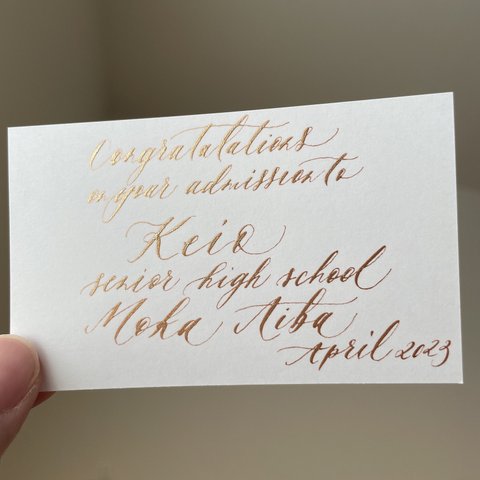 Congratulations
on your admission to
Keio
senior high school
Moka Aiba
April 2023